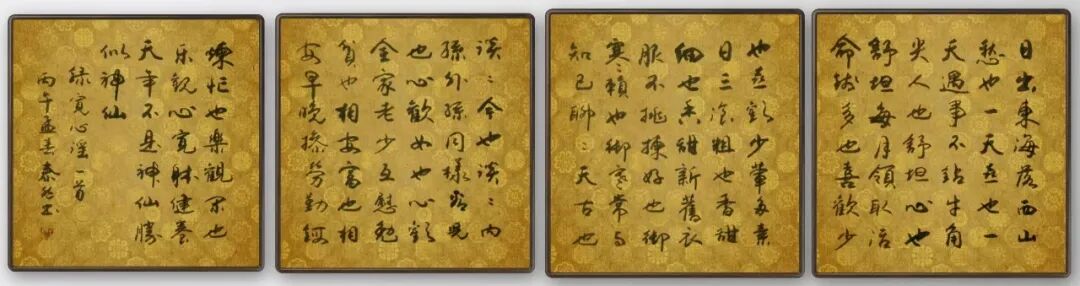 日出東海落西山
愁也一天喜也一
天遇事不钻牛角
尖人也舒坦心也
舒坦每月領取活
命钱多也喜歡少
也喜歡少葷多素
日三飡粗也香甜
細也香甜新舊衣
服不挑揀好也御
寒〻賴也御寒常与
知己聊〻天古也
談〻今也談〻内
孫外孫同樣看児
也心歡女也心歡
全家老少互慰勉
貧也相安富也相
安早晚操劳勤鍛
煉忙也樂觀閑也
乐觀心寬体健養
天年不是神仙勝
似神仙
录寬心謡一首
丙午孟春